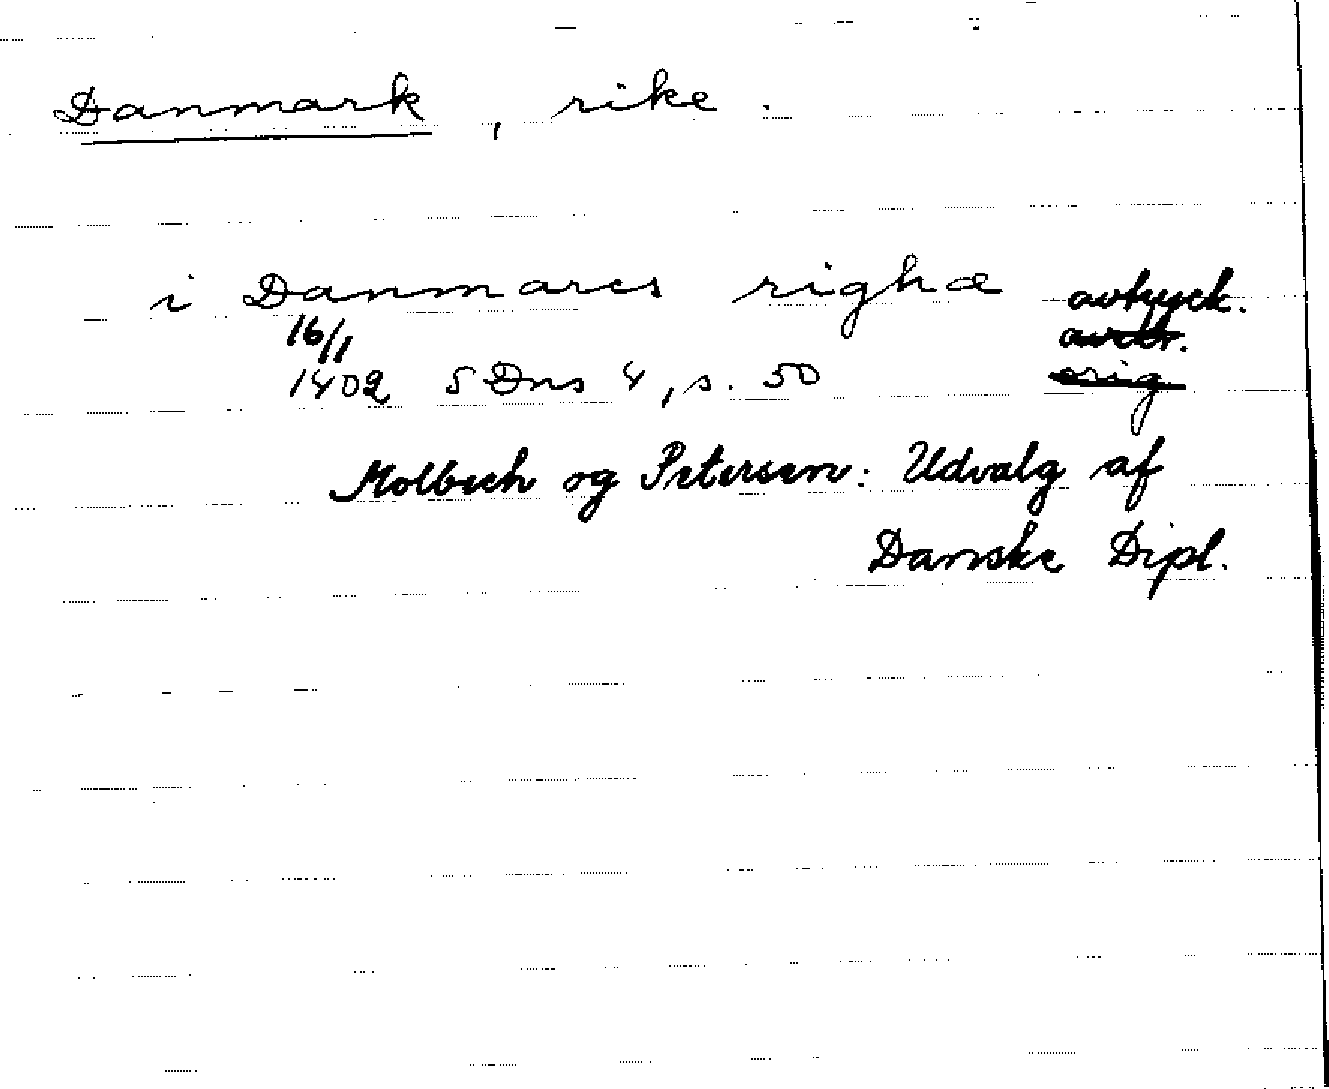 Danmark, rike.
i Danmarcs righæ avtryck.
16/1 avskr.
1402 5 Dns 4, s. 50 orig
Molbech og Petersen: Udvalg af
Danske Dipl.